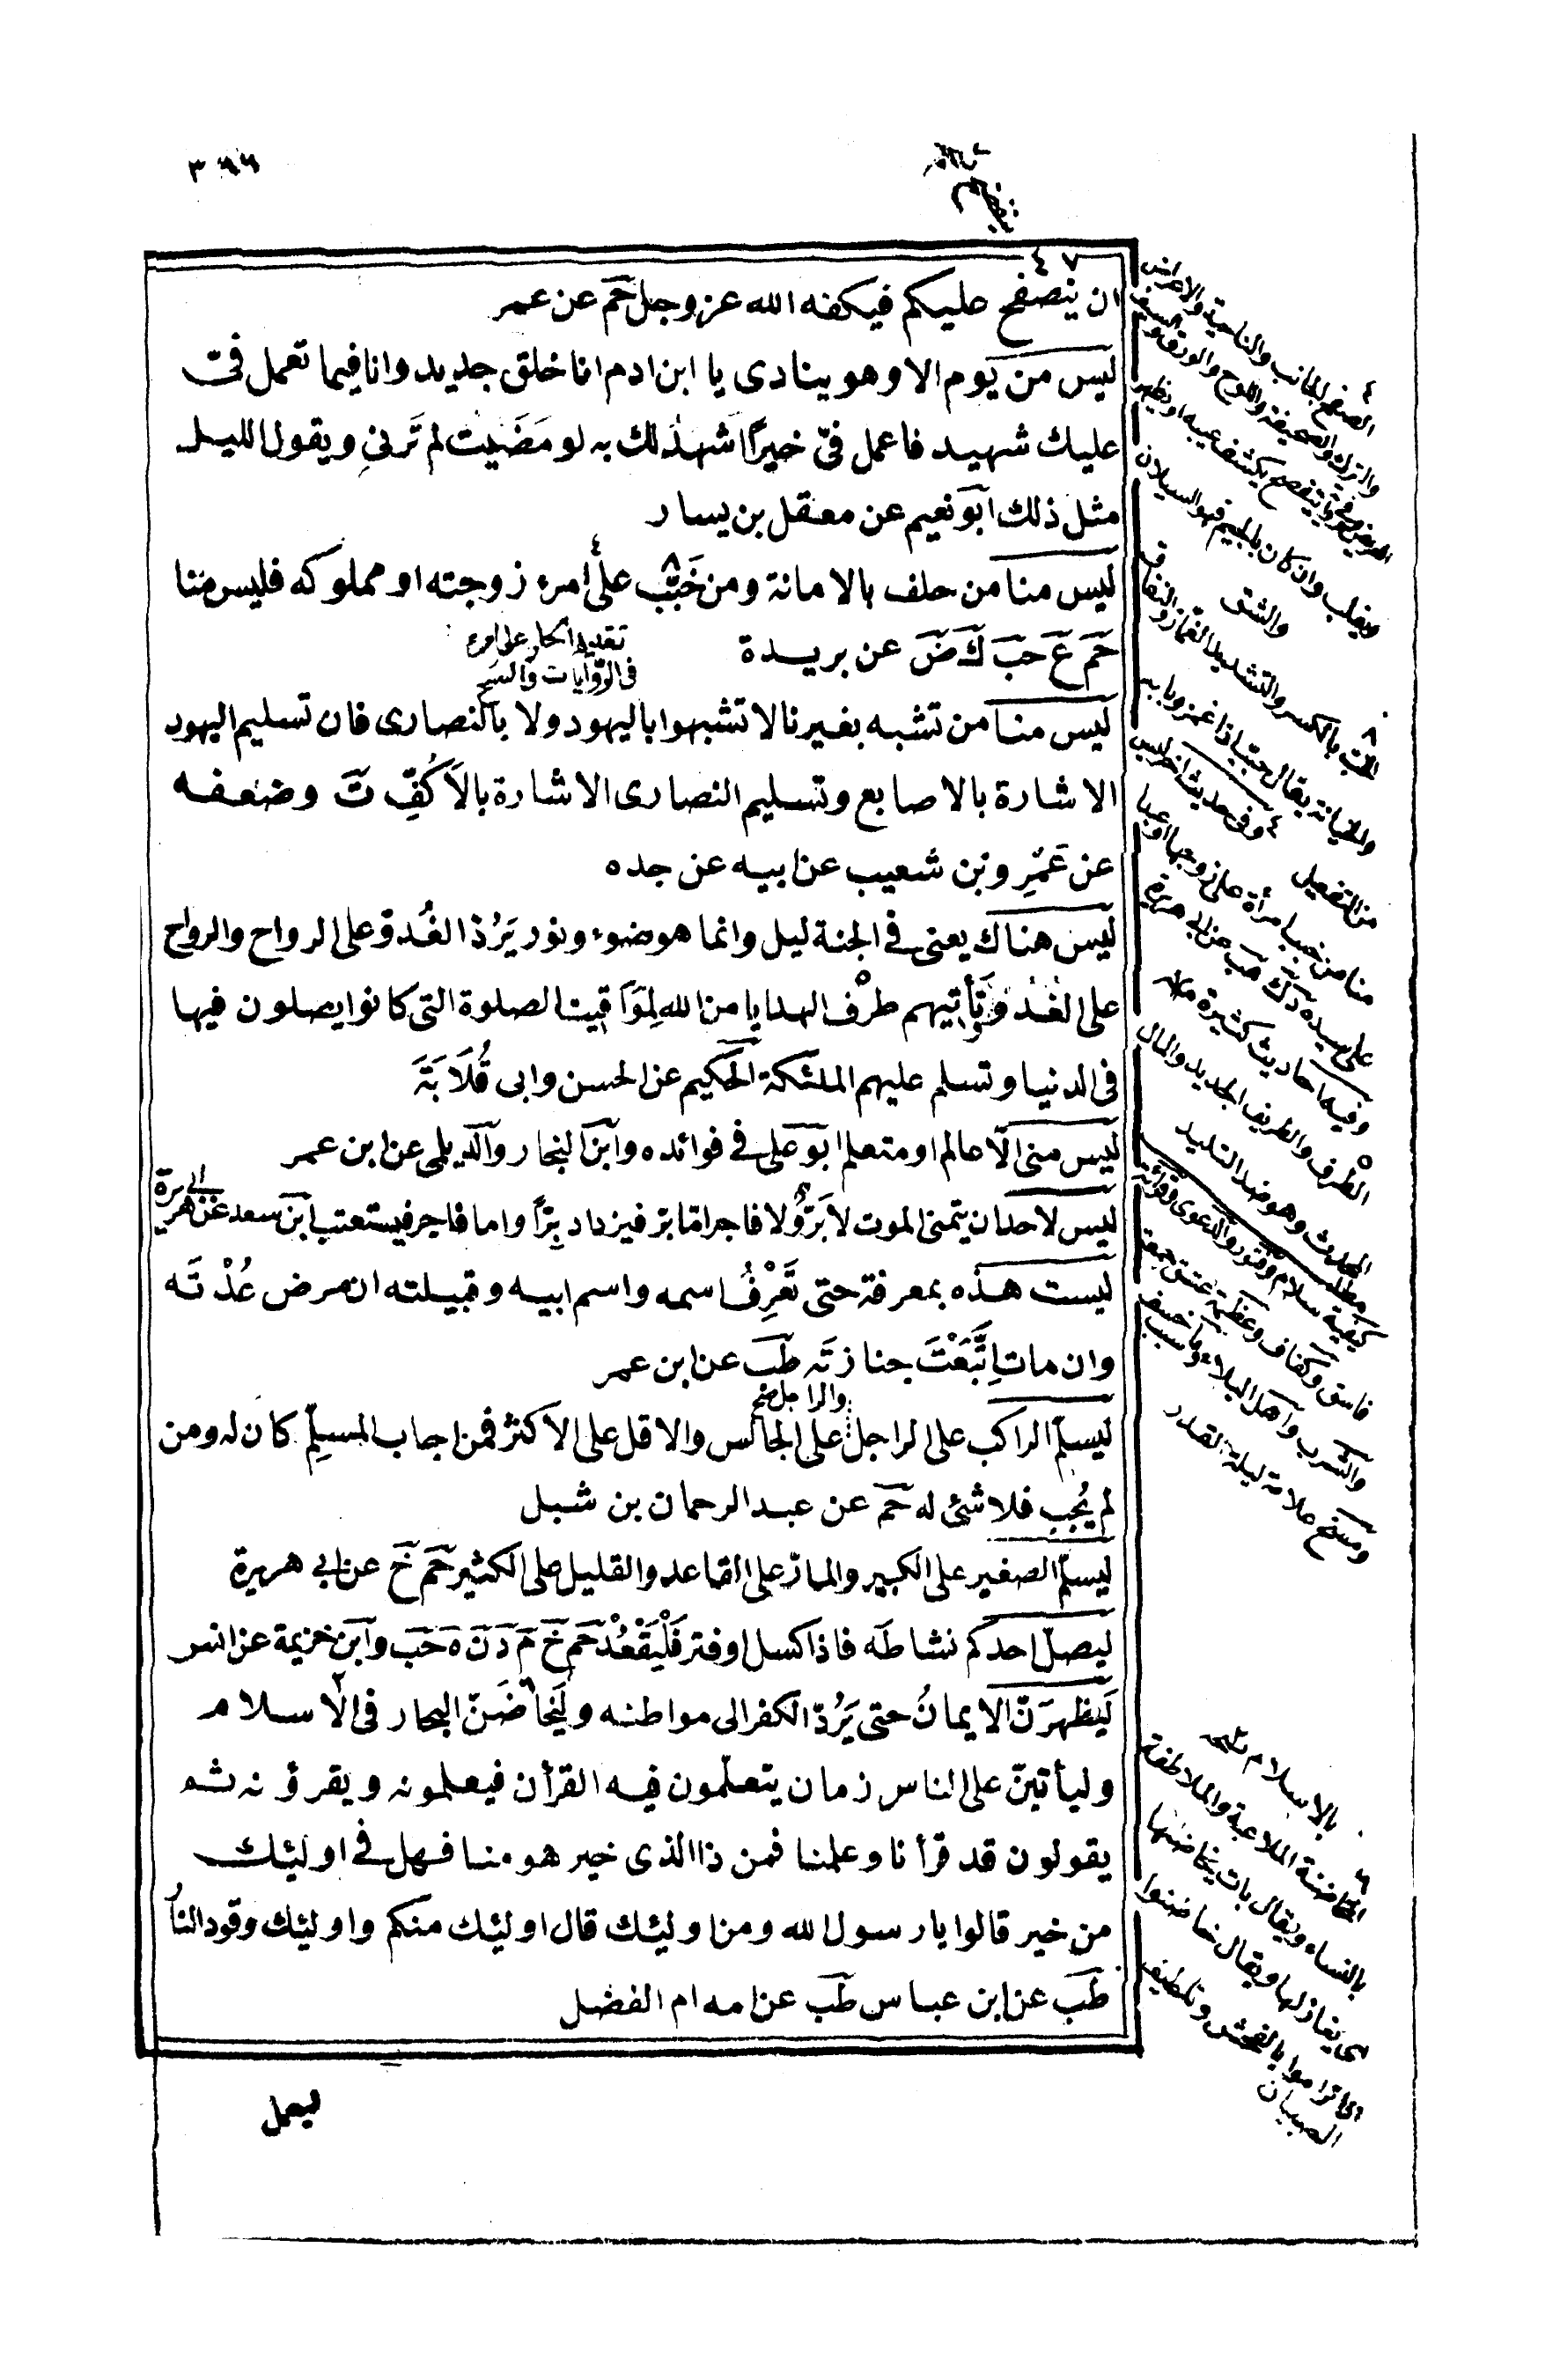 ٣٩٦
ان ينصفح عليكم فيكفه الله عز وجل حم عن عمر
ليس من يوم الا وهو ينادى يا ابن ادم انا خلق جديد وانا فيما تعمل فىّ
عليك شهيد فاعمل فىّ خيرًا اشهد لك به لو مَضَيت لم تَرنى ويقول الليل
مثل ذلك ابو نعيم عن معقل بن يسار
ليس منا من حلف بالامانة ومن خَبَّب على امرء زوجته او مملوكه فليس منا
حم ع حب ك ض عن بريدة
ليس منا من تشبه بغيرنا لا تشبهوا باليهود ولا بالنصارى فان تسليم اليهود
الاشارة بالاصابع وتسليم النصارى الاشارة بالاَكُفِّ ت وضعفه
عن عَمْرِو بن شعيب عن ابيه عن جده
ليس هناك يعنى فى الجنة ليل وانما هو ضوء ونور يَرُدّ الغُدوّ على الرواح والرواح
على الغدوّ وتأتيهم طرف الهدايا من الله لِمَوَاقيت الصلوة التى كانوا يصلون فيها
فى الدنيا وتسلم عليهم الملئكة الحكيم عن الحسن وابى قُلَابَةَ
ليس منى الّا عالم او متعلم ابو على فى فوائده وابن النجار والديلمى عن ابن عمر
ليس لاحد ان يتمنى الموت لا بَرّ ولا فاجر امّا برّ فيزداد بِرّاً واما فاجر فيستعتب ابن سعد عن ابى هريرة
ليست هذه بمعرفة حتى تَعْرِفُ اسمه واسم ابيه وقبيلته ان مرض عُدْتَه
وان مات اِتَّبَعْتَ جنازتَه طب عن ابن عمر
ليسلّم الراكب على الراجل والراجل على الجالس والاقل على الاكثر فمن اجاب المسلِّم كان له ومن
لم يُجِب فلا شئ له حم عن عبد الرحمان بن شبل
ليسلّم الصغير على الكبير والمارّ على القاعد والقليل على الكثير حم خ عن ابى هريرة
ليصلّ احدكم نشاطَه فاذا كسل او فتر فَلْيَقْعُدْ حم خ م د ن ه حب وابن خزيمة عن انس
لَيَظهرَنّ الايمانُ حتى يَرُدّ الكفر الى مواطنه ولَيُخَاضَنّ البحار فى الاسلام
وليأتينّ على الناس زمان يتعلّمون فيه القرأن فيعلمونه ويقرؤنه ثم
يقولون قد قرأنا وعلمنا فمن ذا الذى خير هو منا فهل فى اولئك
من خير قالوا يا رسول الله ومن اولئك قال اولئك منكم واولئك وقود النارُ
طب عن ابن عباس طب عن امه ام الفضل
ليعمل
تقديم الجار على امرء
فى الروايات والنسخ
وان كان بالجيم فهو السيلان
والشق
من التفعيل
منا من خبب امرأة على زوجها او عبدا
على سيده د ك هب عن ابى هريرة
وفيه احاديث كثيرة
الطرف والطريف الجديد والمال
المحدث وهو ضد التليد
علامة ليلة القدر
بالاسلام نسخه
المخاضنة الملاعبة والملاطفة
بالنساء ويقال بات يخاضنها
اى يغازلها ويقال خاضنوا
اى تراموا بالفحش
الصبيان